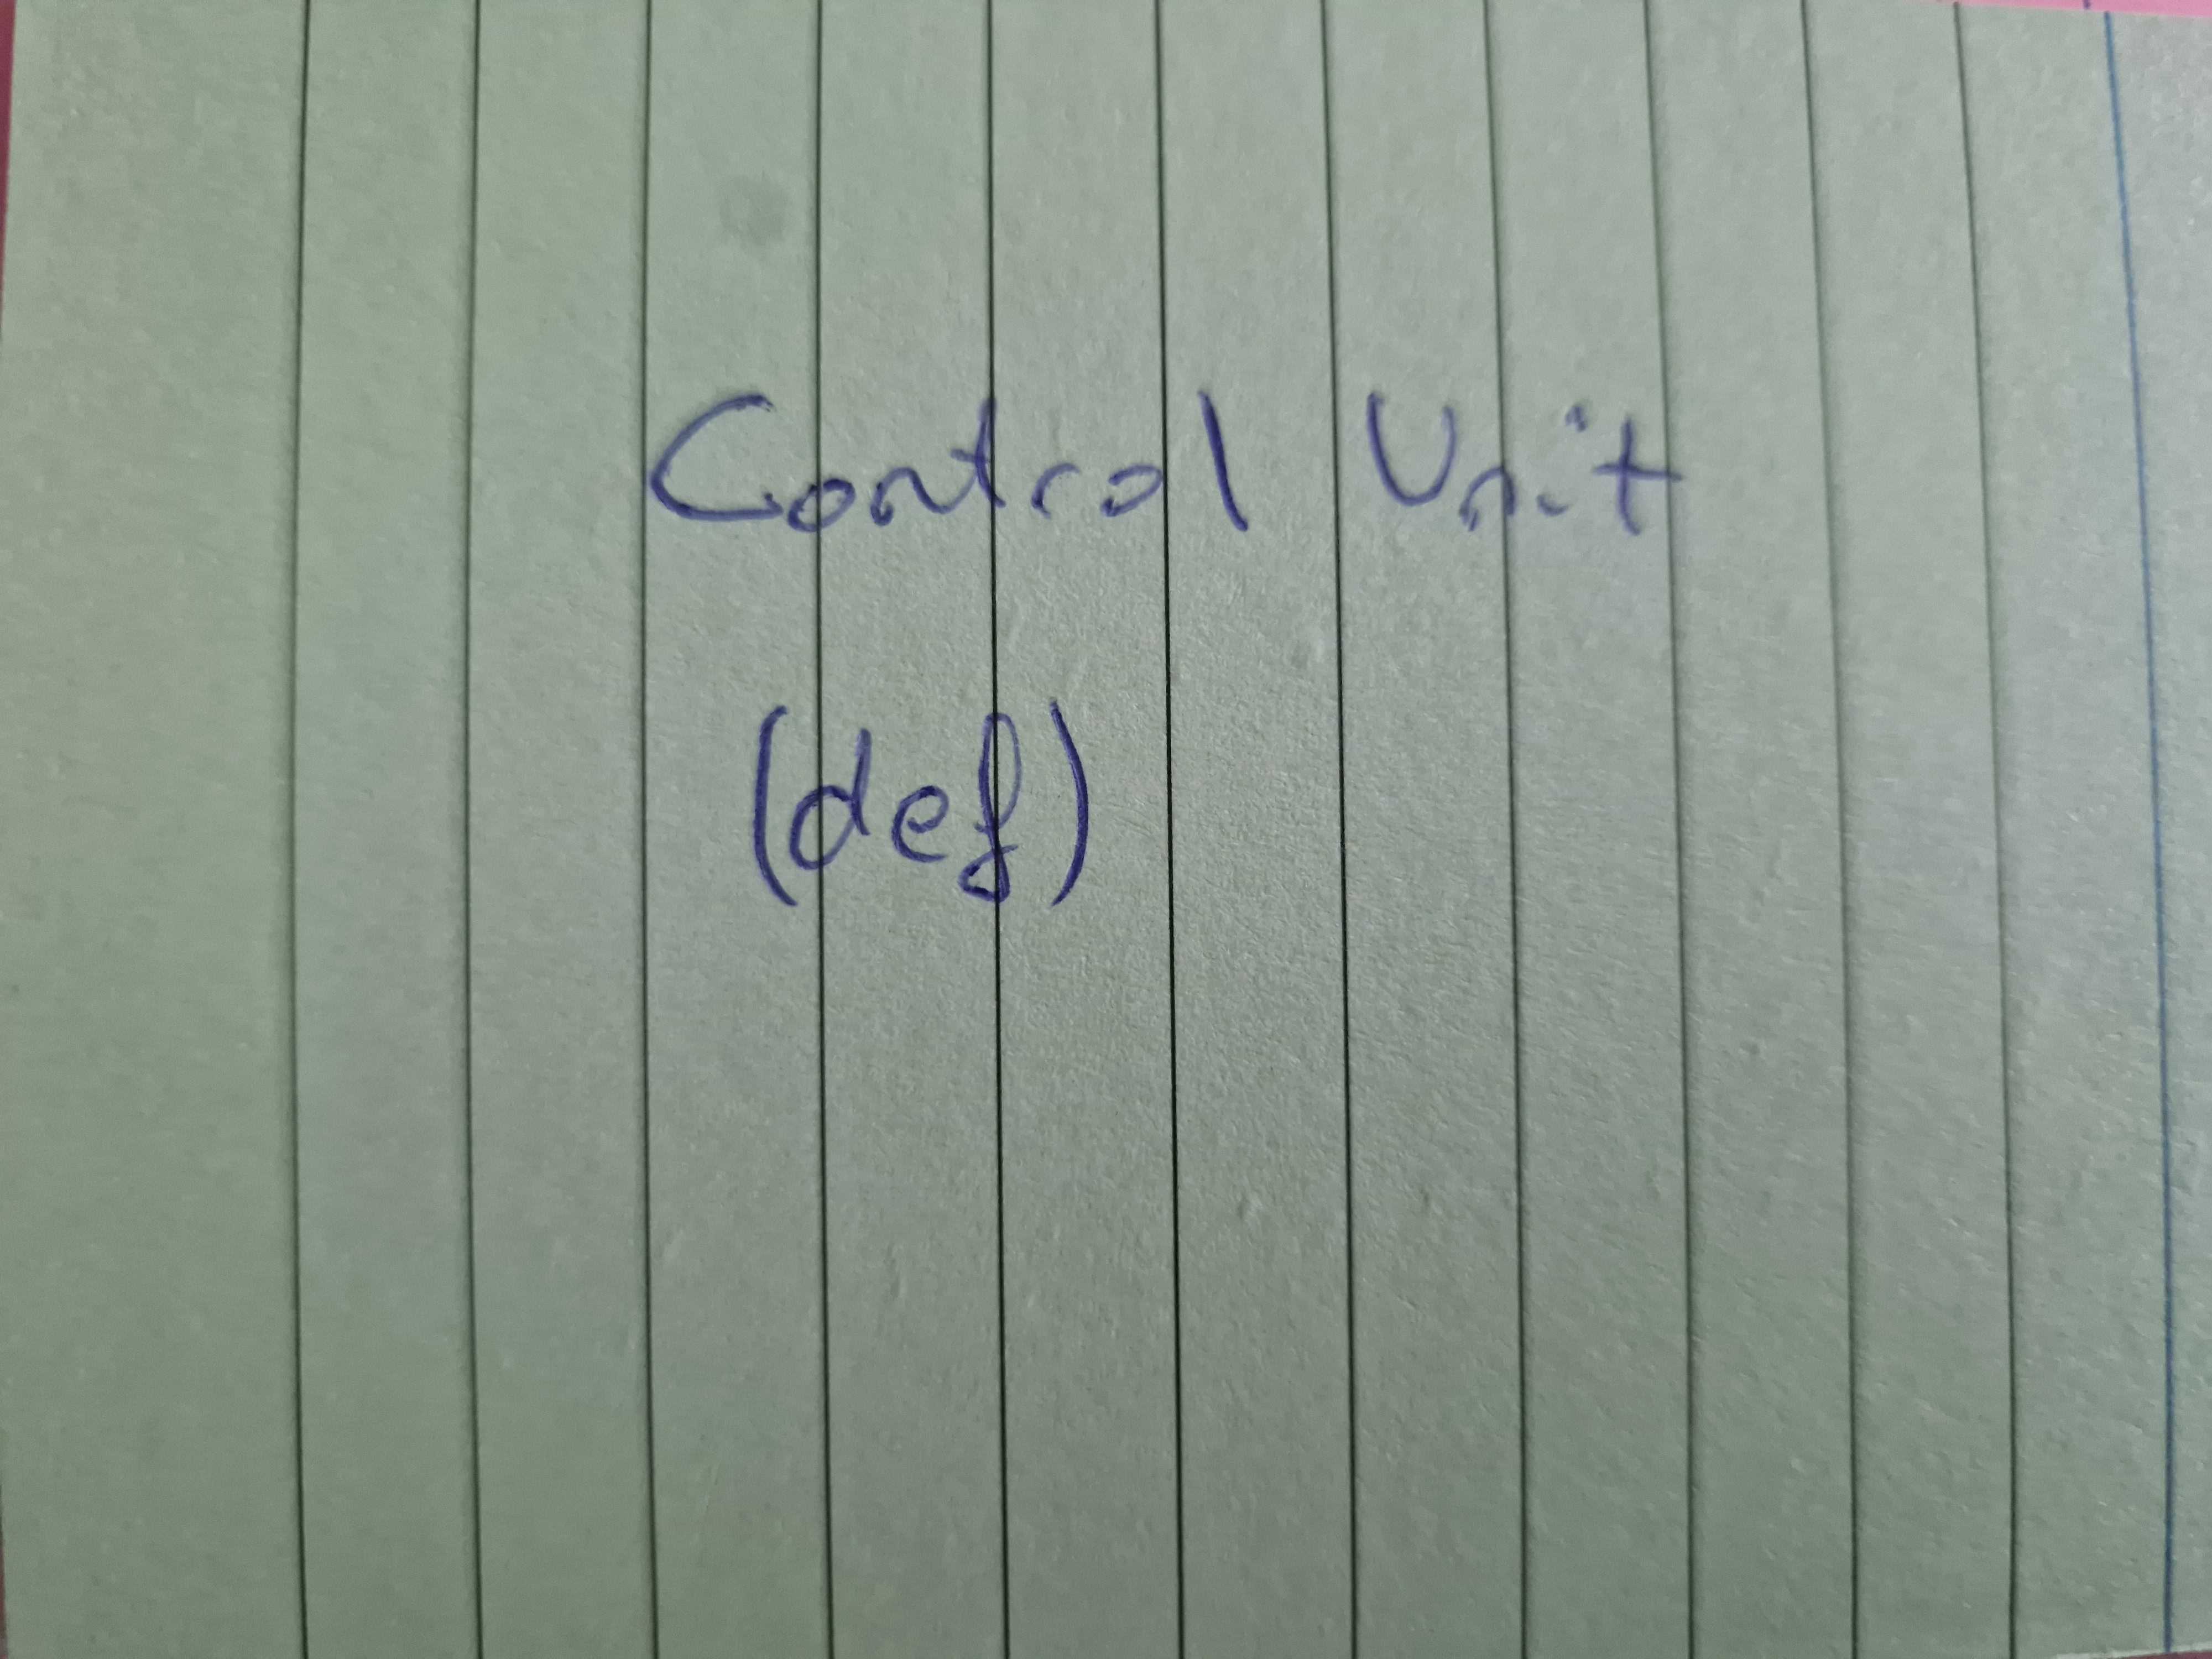 Control Unit
(def)